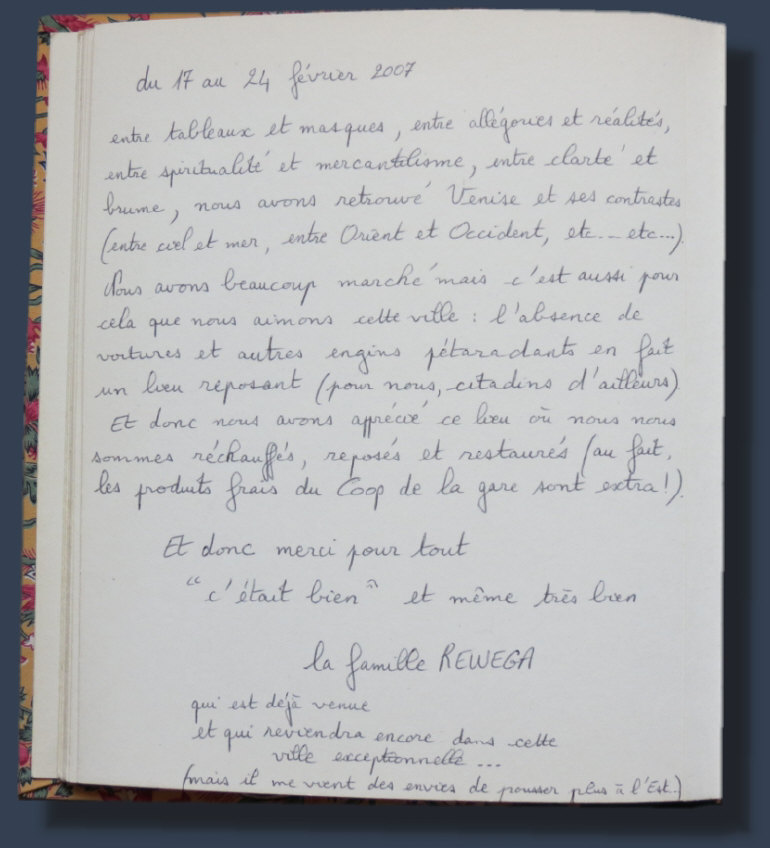 du 17 au 24 février 2007
entre tableaux et masques, entre allégories et réalités,
entre spiritualité et mercantilisme, entre clarté et
brume, nous avons retrouvé Venise et ses contrastes
(entre ciel et mer, entre Orient et Occident, etc... etc...).
Nous avons beaucoup marché mais c'est aussi pour
cela que nous aimons cette ville : l'absence de
voitures et autres engins pétaradants en fait
un lieu reposant (pour nous, citadins d'ailleurs)
Et donc nous avons apprécié ce lieu où nous nous
sommes réchauffés, reposés et restaurés (au fait,
les produits frais du Coop de la gare sont extra!).
Et donc merci pour tout
"c'était bien" et même très bien
la famille REWEGA
qui est déjà venue
et qui reviendra encore dans cette
ville exceptionnelle...
(mais il me vient des envies de pousser plus à l'Est..)